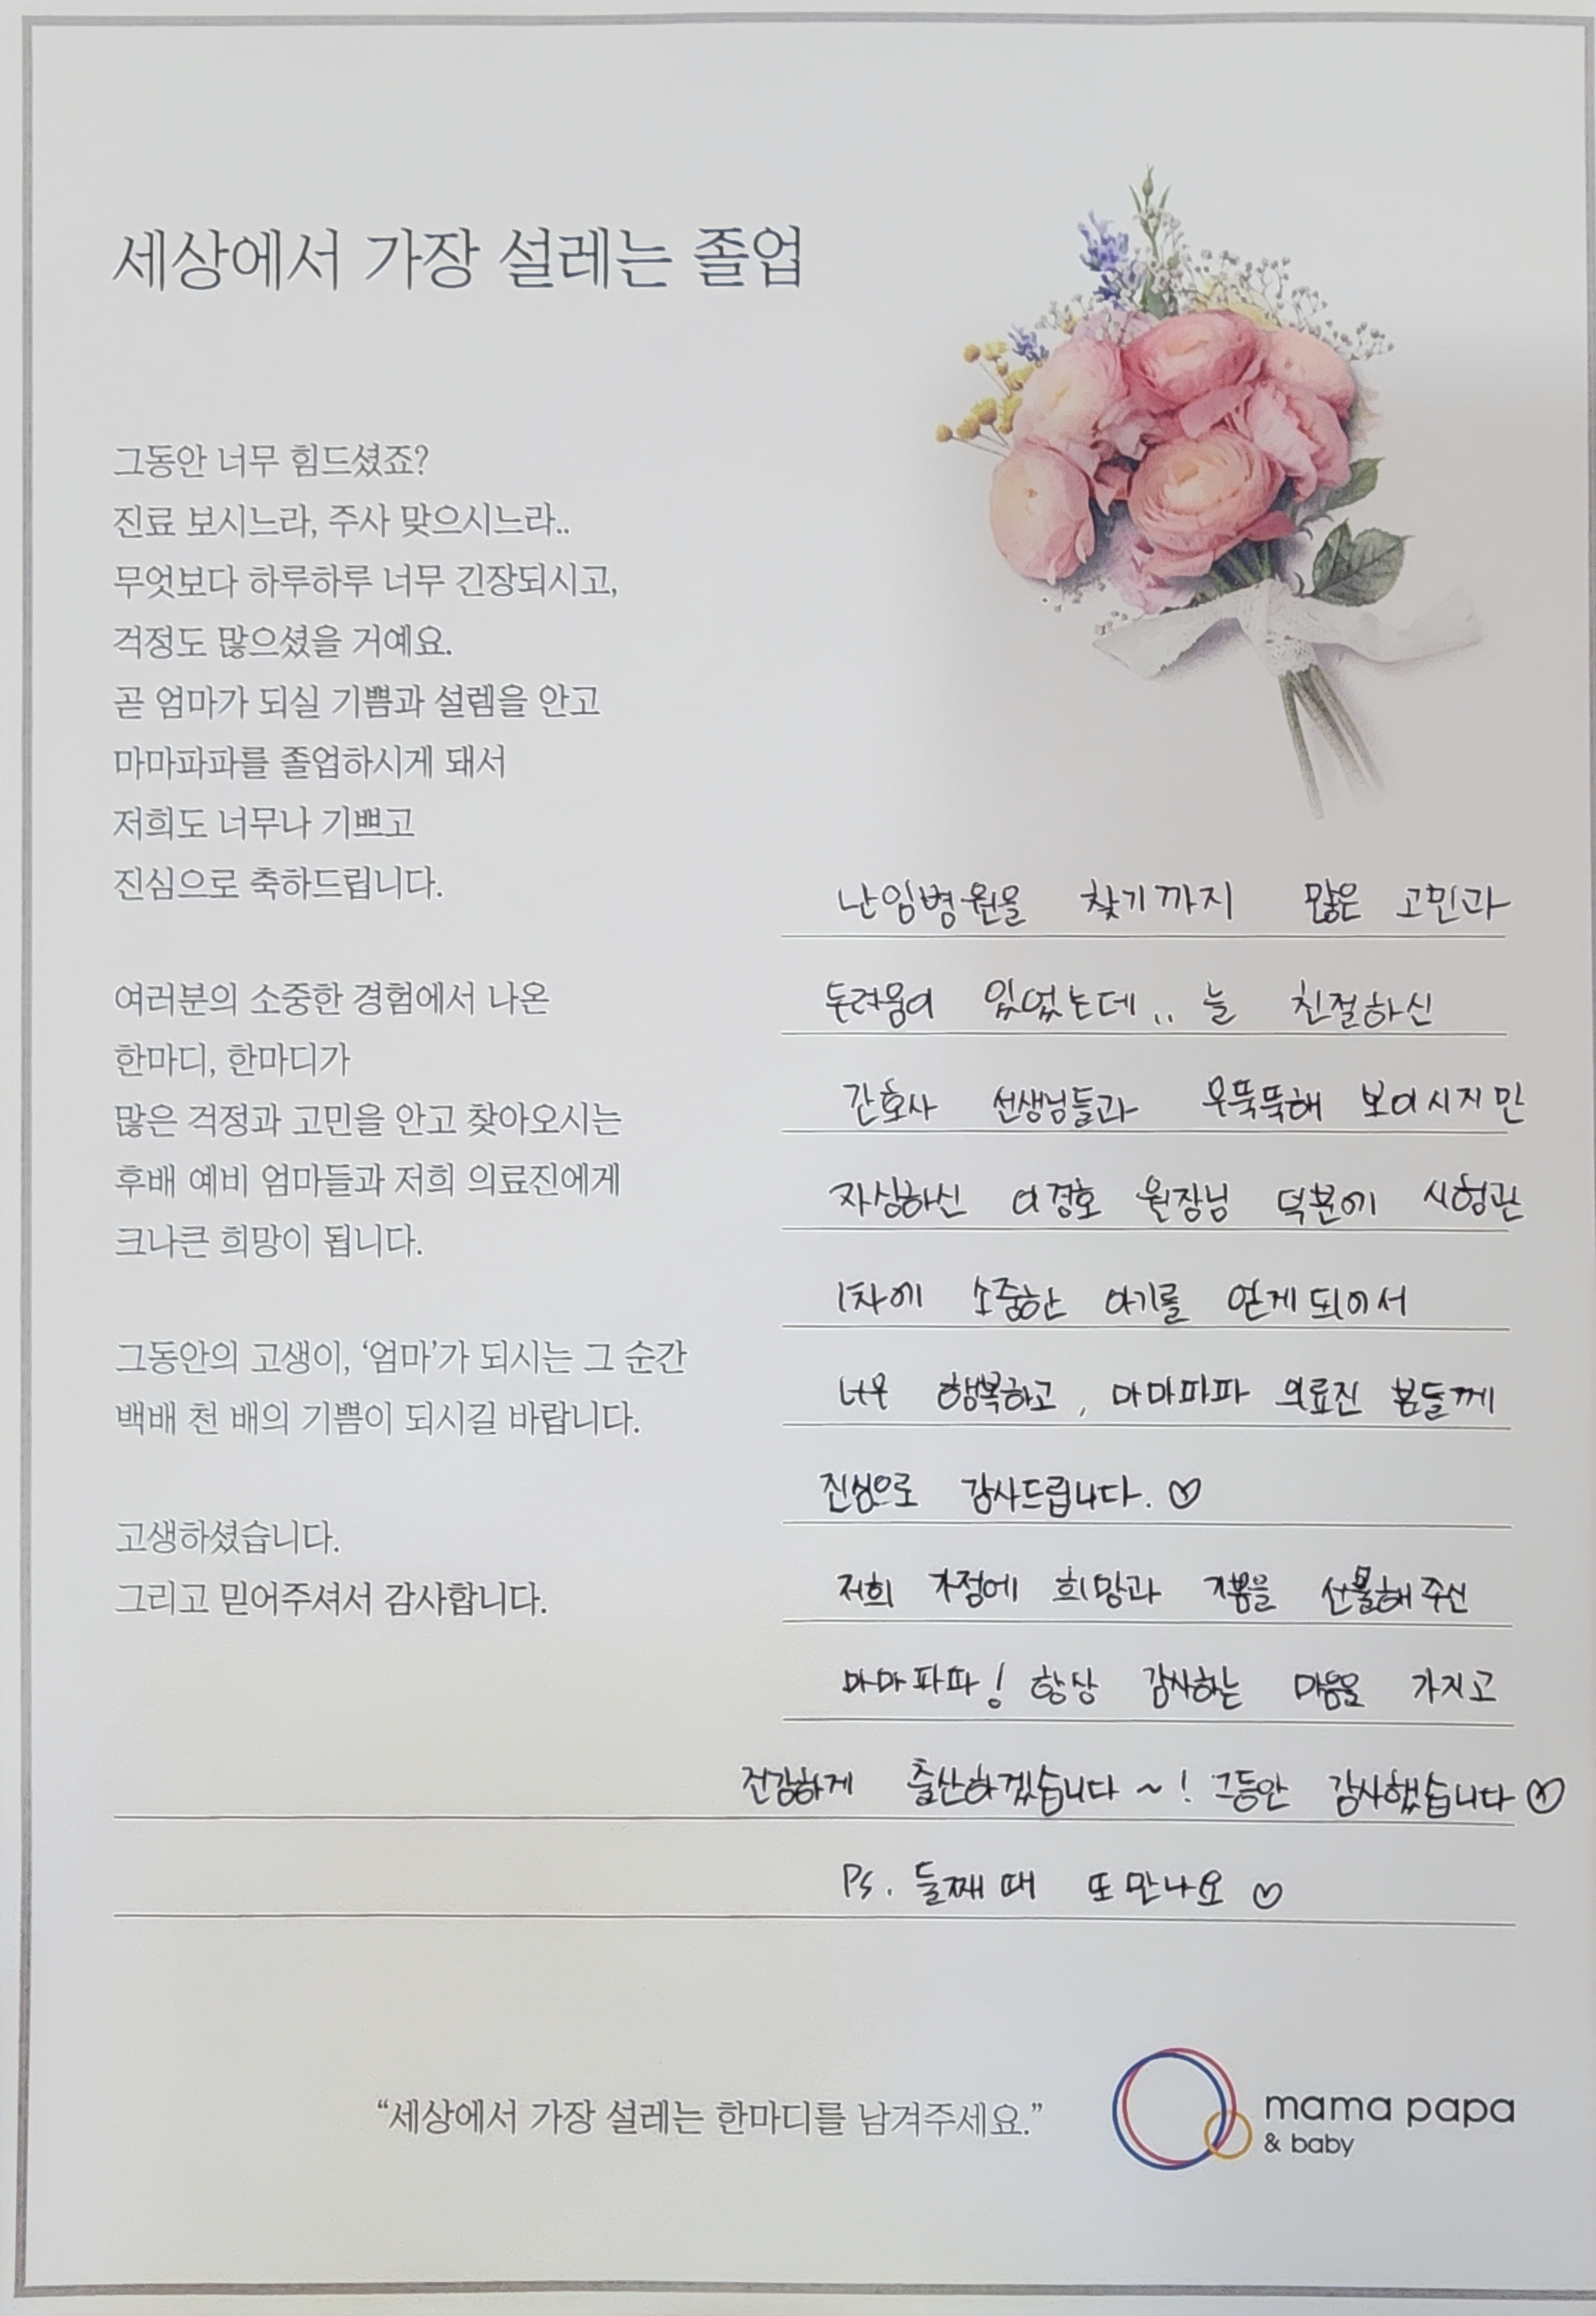 세상에서 가장 설레는 졸업
그동안 너무 힘드셨죠?
진료 보시느라, 주사 맞으시느라..
무엇보다 하루하루 너무 긴장되시고,
걱정도 많으셨을 거예요.
곧 엄마가 되실 기쁨과 설렘을 안고
마마파파를 졸업하시게 돼서
저희도 너무나 기쁘고
진심으로 축하드립니다.
여러분의 소중한 경험에서 나온
한마디, 한마디가
많은 걱정과 고민을 안고 찾아오시는
후배 예비 엄마들과 저희 의료진에게
크나큰 희망이 됩니다.
그동안의 고생이, ‘엄마’가 되시는 그 순간
백배 천 배의 기쁨이 되시길 바랍니다.
고생하셨습니다.
그리고 믿어주셔서 감사합니다.
난임병원을 찾기까지 많은 고민과
두려움이 있었는데.. 늘 친절하신
간호사 선생님들과 무뚝뚝해 보이시지만
자상하신 이경호 원장님 덕분에 시험관
1차에 소중한 아기를 얻게되어서
너무 행복하고, 마마파파 의료진 분들께
진심으로 감사드립니다. ♡
저희 가정에 희망과 기쁨을 선물해주신
마마파파! 항상 감사하는 마음을 가지고
건강하게 출산하겠습니다~! 그동안 감사했습니다♡
Ps. 둘째때 또만나요♡
“세상에서 가장 설레는 한마디를 남겨주세요.”
mama papa
& baby